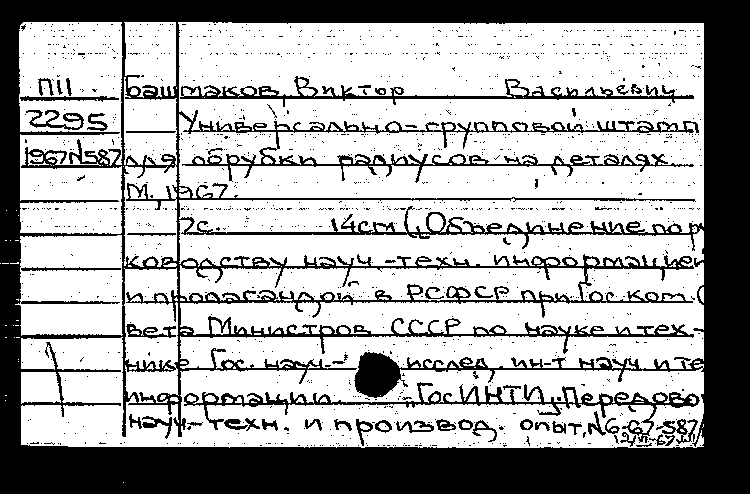 П11 Башмаков, Виктор Васильевич
2295 Универсально-групповой штамп
1967N587 для обрубки радиусов на деталях
М., 1967.
7с. 14см („Объединение по ру
ководству науч.-техн. информацией
и пропагандой в РСФСР при Гос ком. С
вета Министров СССР по науке и тех-
нике Гос. науч.- исслед. ин-т науч и те
информации „ГосИНТИ„. Передово
науч.-техн. и производ. опыт, N6-67-587/